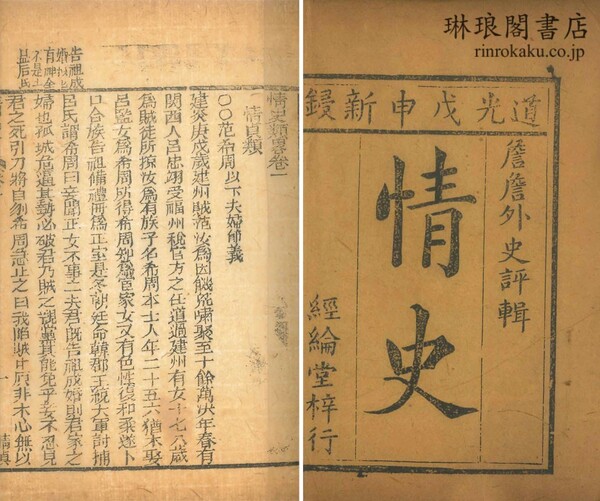 琳琅閣書店
rinrokaku.co.jp
道光戊申新鐫
詹詹外史評輯
情史
經綸堂梓行
情史類畧卷一
情貞類
〇〇范希周 以下夫婦節義
建炎庚戌歲建州賊范汝為因饑荒嘯聚至十餘萬次年春有
關西人呂忠翊受福州稅官方之任道過建州有女十七八歲
為賊徒所掠汝為有族子名希周本士人年二十五六猶未娶
呂監女為希周所得希周知為宦家女又有色性復和柔遂卜
日合族告祖備禮冊為正室是冬朝廷命韓郡王統大軍討捕
呂氏謂希周曰妾聞正女不事二夫君既告祖成婚則君家之
婦也孤城危逼其勢必破君乃賊之親黨其能免乎妾不忍見
君之死引刀將自刎希周急止之曰我陷賊中原非本心無以
告祖成
情貞
一